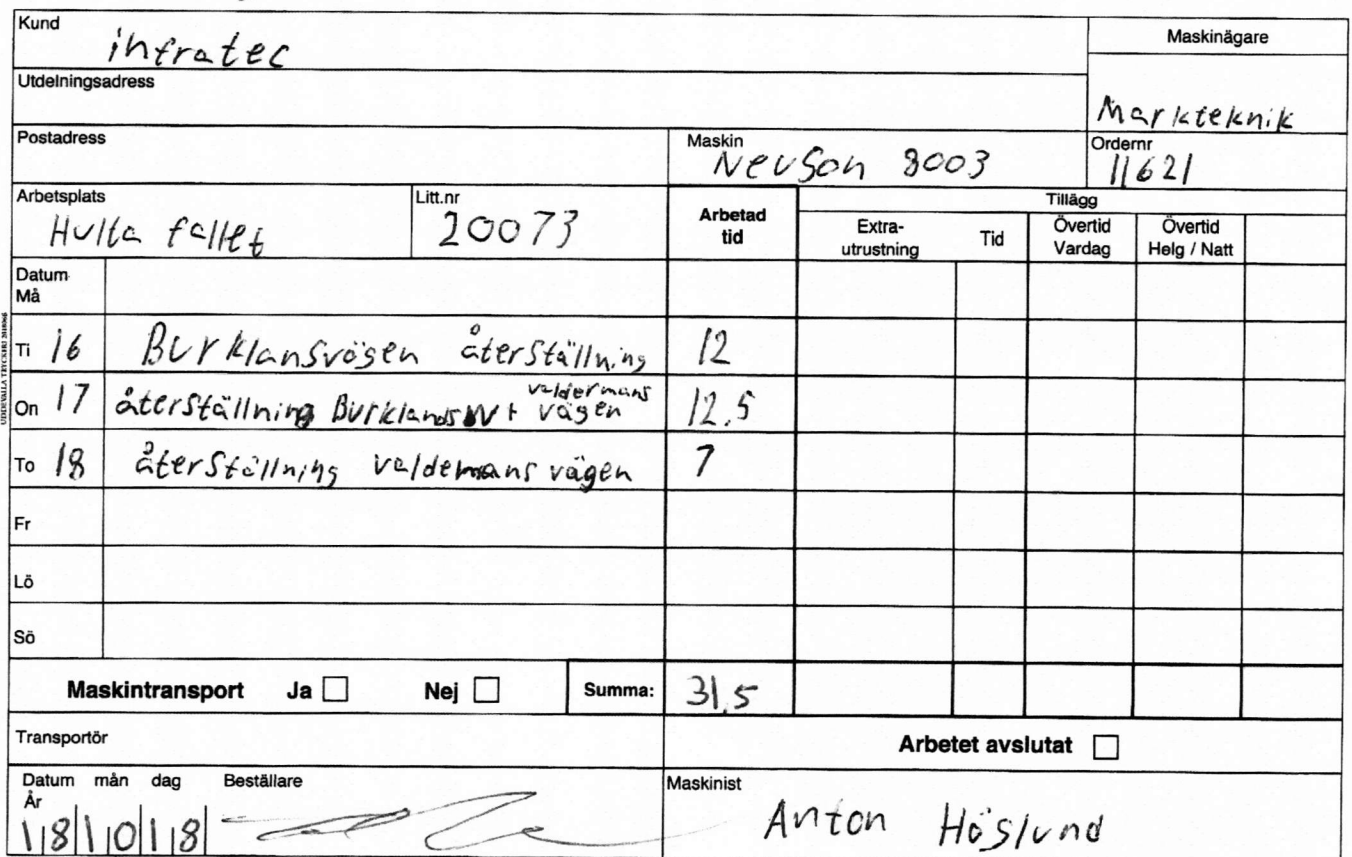 Kund
infratec
Maskinägare
Utdelningsadress
Markteknik
Postadress
Maskin
Neuson 8003
Ordernr
11621
Arbetsplats
Hulta fallet
Litt.nr
20073
Arbetad tid
Tillägg
Extra-utrustning
Tid
Övertid Vardag
Övertid Helg / Natt
Datum
Må
Ti 16 Burklansvägen återställning 12
On 17 återställning Burklands V + valdermans vägen 12,5
To 18 återställning valdemans vägen 7
Fr
Lö
Sö
Maskintransport Ja Nej Summa: 31,5
Transportör
Arbetet avslutat
Datum mån dag Beställare
År
181018
Maskinist
Anton Höglund